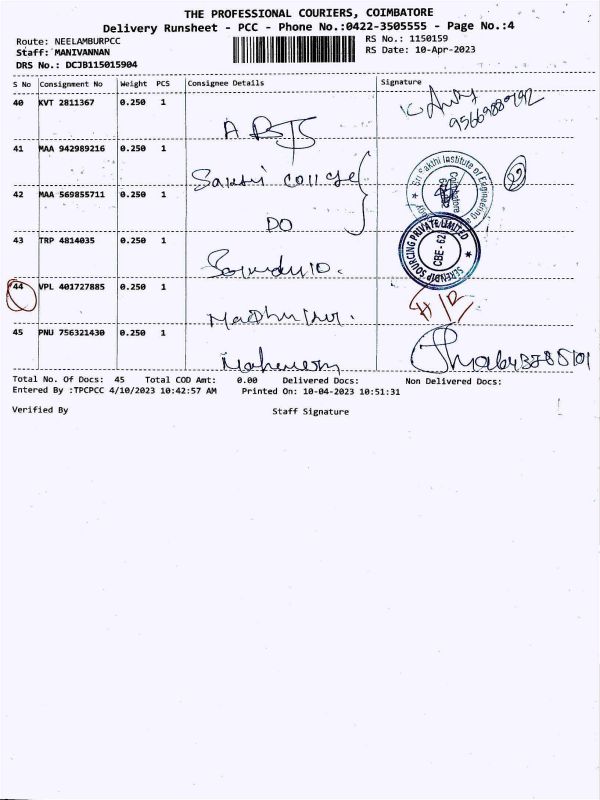 THE PROFESSIONAL COURIERS, COIMBATORE
Delivery Runsheet - PCC - Phone No.:0422-3505555 - Page No.:4
Route: NEELAMBURPCC
RS No.: 1150159
Staff: MANIVANNAN
RS Date: 10-Apr-2023
DRS No.: DCJB115015904
S No Consignment No Weight PCS Consignee Details Signature
40 KVT 2811367 0.250 1
41 MAA 942989216 0.250 1
Sakthi College
Sri Sakthi Institute of Engineering
Coimbatore
42 MAA 569855711 0.250 1
DO
43 TRP 4814035 0.250 1
SERENDIP SOURCING PRIVATE LIMITED
CBE - 62
44 VPL 401727885 0.250 1
45 PNU 756321430 0.250 1
Total No. Of Docs: 45 Total COD Amt: 0.00 Delivered Docs: Non Delivered Docs:
Entered By :TPCPCC 4/10/2023 10:42:57 AM Printed On: 10-04-2023 10:51:31
Verified By Staff Signature